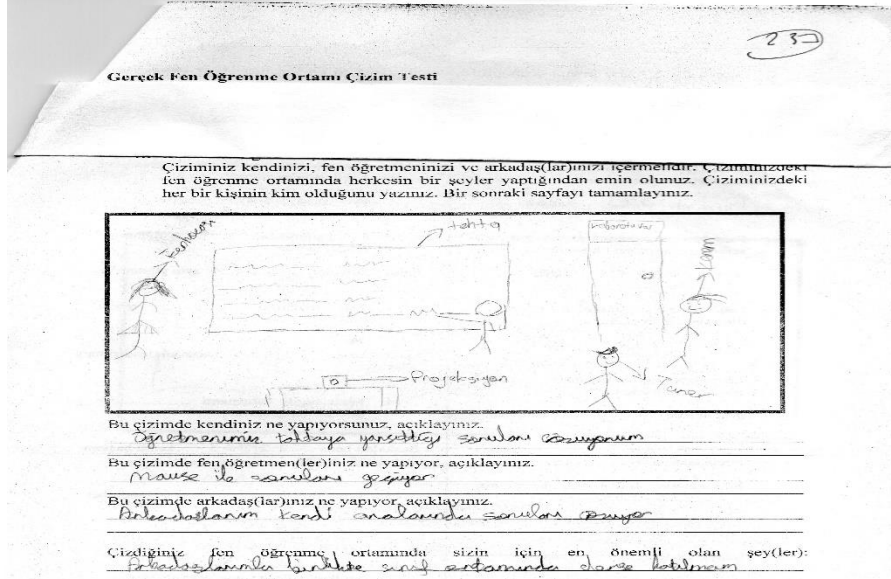 237
Gerçek Fen Öğrenme Ortamı Çizim Testi
Çiziminiz kendinizi, fen öğretmeninizi ve arkadaş(lar)ınızı içermelidir. Çiziminizdeki
fen öğrenme ortamında herkesin bir şeyler yaptığından emin olunuz. Çiziminizdeki
her bir kişinin kim olduğunu yazınız. Bir sonraki sayfayı tamamlayınız.
tahta
Kerim
Projeksiyon
Taner
Bu çizimde kendiniz ne yapıyorsunuz, açıklayınız.
Öğretmenimiz tahtaya yansıttığı soruları çözüyorum
Bu çizimde fen öğretmen(ler)iniz ne yapıyor, açıklayınız.
mause ile soruları geçiyor
Bu çizimde arkadaş(lar)ınız ne yapıyor, açıklayınız.
Arkadaşlarım kendi aralarında soruları çözüyor
Çizdiğiniz fen öğrenme ortamında sizin için en önemli olan şey(ler):
Arkadaşlarımla birlikte sınıf ortamında derse katılmam